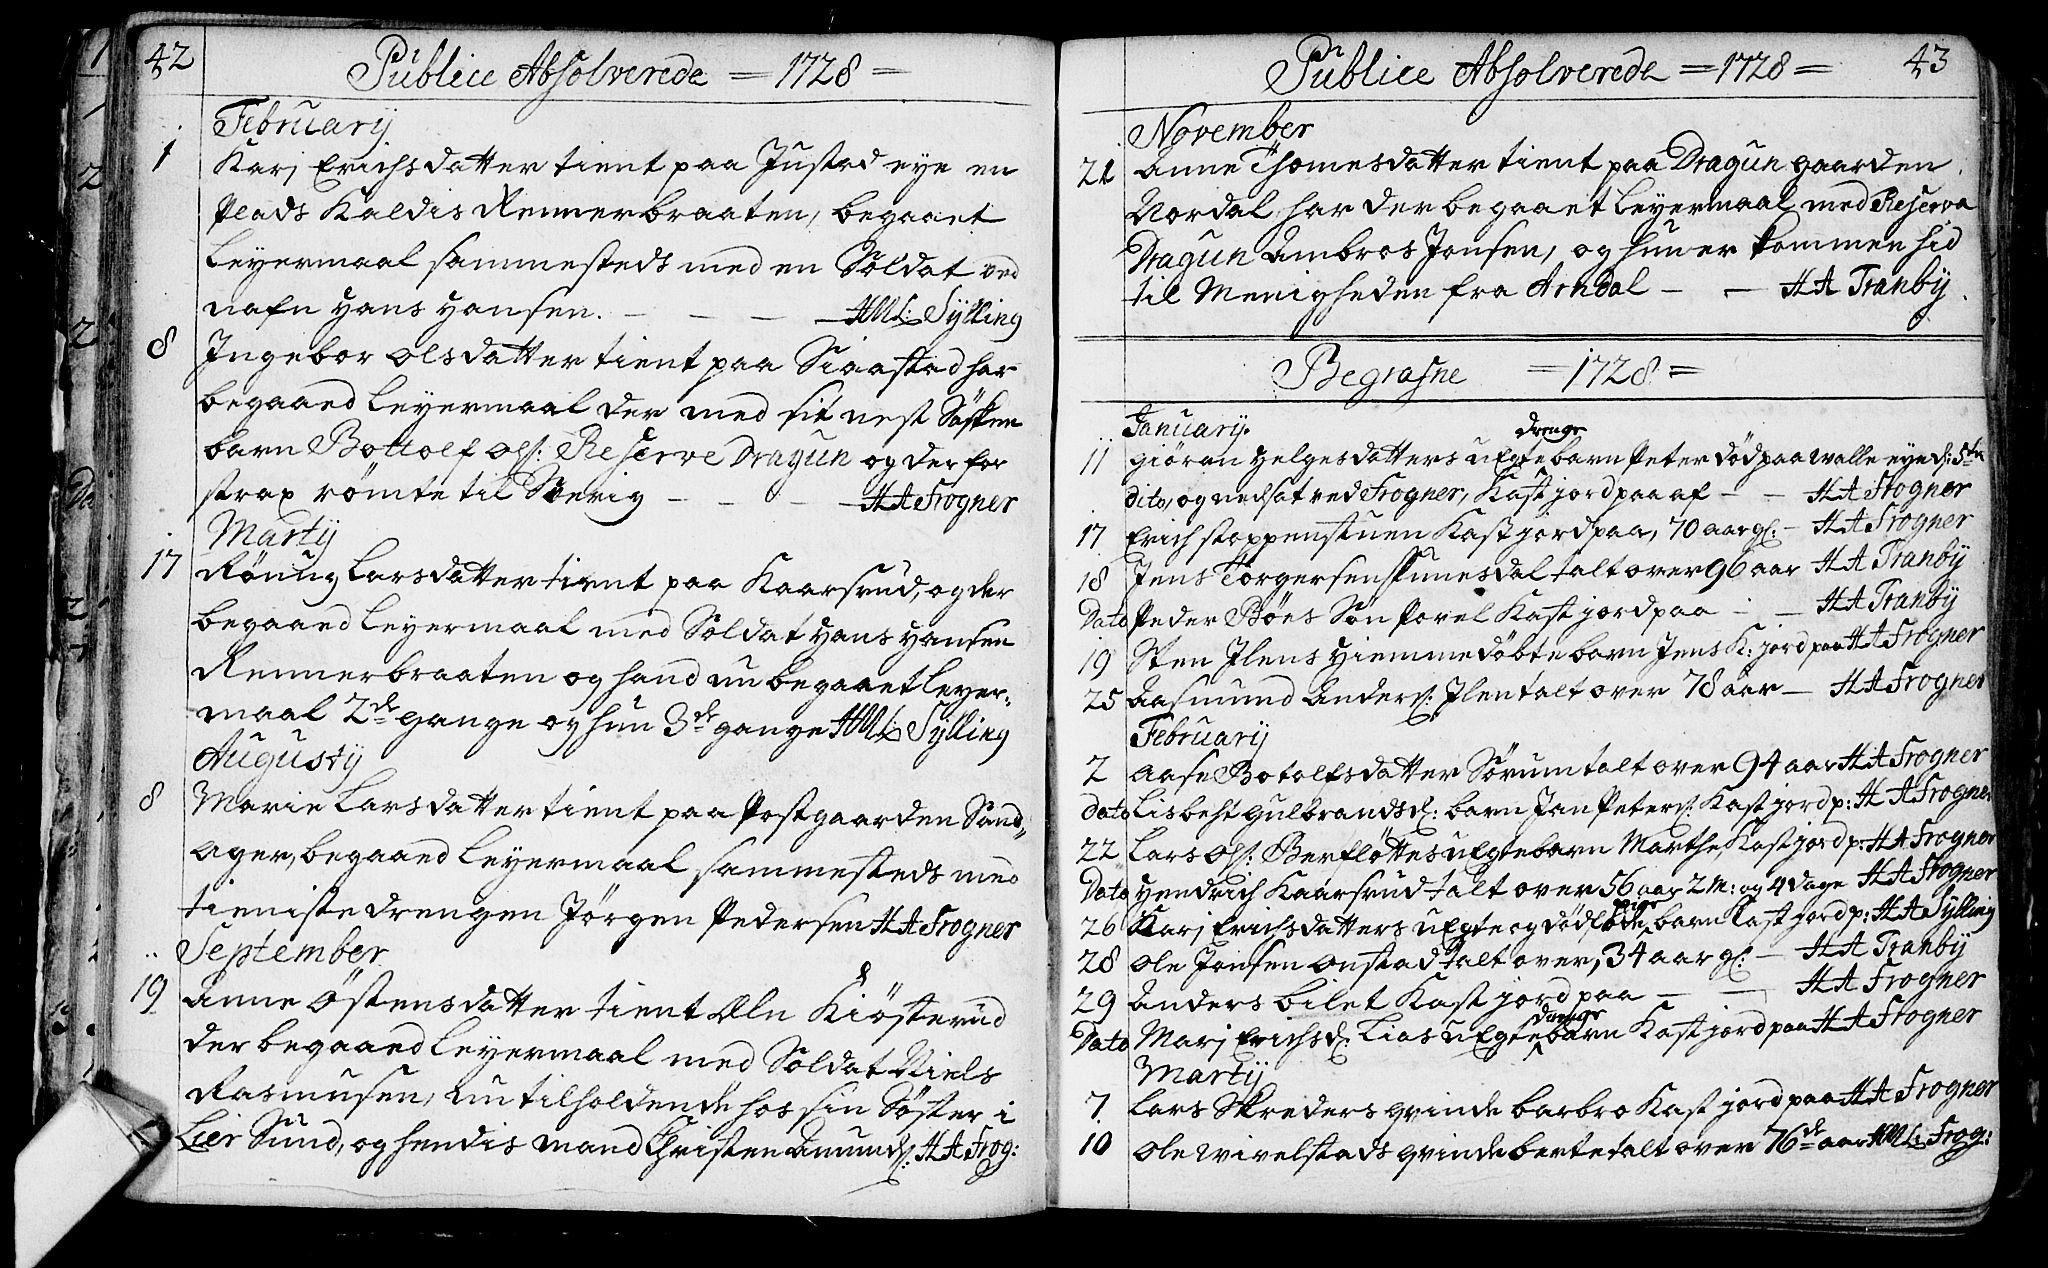 42
Publice Absolverede = 1728 =
February
1 Karj Erichsdatter tient paa Justad eye en
Plads Kaldis Rennerbraaten, begaaet
Leyermaal sammesteds med en Soldat ved
nafn Hans Hansen. — — — HML: Sylling
8 Ingebor Olsdatter tient paa Siaastad har
begaaed Leyermaal der med sit nest Søsken
barn Bottolf Ols: Reserve Dragun og derfor
strax rømte til Sverig — — — HA Frogner
Martij
17 Rönnug Larsdatter tient paa Kaarsrud, og der
begaaed Leyermaal med Soldat Hans Hansen
Rennerbraaten og hand nu begaaet Leyer-
maal 2de gange og hun 3de gange HML: Sylling
Augustij
8 Marie Larsdatter tient paa Postgaarden Sand-
ager, begaaed Leyermaal sammesteds med
tieniste drengen Jørgen Pedersen HA Frogner
September
19 Anne Östensdatter tient Øln Kiösterud
der begaaed Leyermaal med Soldat Niels
Rasmusen, nu tilholdende hos sin Søster i
Lier Sund, og hendis mand Christen Amunds: HA Frog:
43
Publice Absolverede = 1728 =
November
21 Anne Thomesdatter tient paa Dragun gaarden
Nordal, har der begaaet Leyermaal med Reserva
Dragun Ambros Jonsen, og hun er kommen hid
til Menigheden fra Arndal — — HA Tranby.
Begrafne = 1728 =
January.
11 Giöran Helgesdatters uEgte drenge barn Peter död paa Walle eye d: 5te
dito, og nedsat ved Frogner, Kast jord paa af — — HA Frogner
17 Erich Stoppenstuen Kast jord paa, 70 aar gl: — HA Frogner
18 Jens Torgersen Skunesdal talt over 96 aar HA Tranby
Dato Peder Böes Søn Povel Kast jord paa — — HA Tranby
19 Sten Ilens Hiemmedöbte barn Jens K: jord paa HA Frogner
25 Aasmund Anders: Ilen talt over 78 aar — HA Frogner
February
2 Aase Botolfsdatter Sörum talt over 94 aar HA Frogner
Dato Lisbeht Gulbrandsd: barn Jan Peters: Kast jord p: HA Frogner
22 Lars Ols: Berfløttes uEgte barn Marthe, Kast jord p: HA Frogner
Dato Hendrich Kaarsrud talt over 56 aar 2 M: og 4 dage HA Frogner
26 Karj Erichsdatters uEgte og dödföde pige barn Kast jord p: HA Sylling
28 Ole Jonsen Onstad talt over, 34 aar gl: — HA Tranby
29 Anders Bilet Kast jord paa — — HA Frogner
Dato Marj Erichsd: Lias uEgte drenge barn Kast jord paa HA Frogner
Martij
7 Lars Skreders qvinde Barbro Kast jord paa HA Frogner
10 Ole Wivelstads qvinde Berte talt over 76de aar HML: Frog: